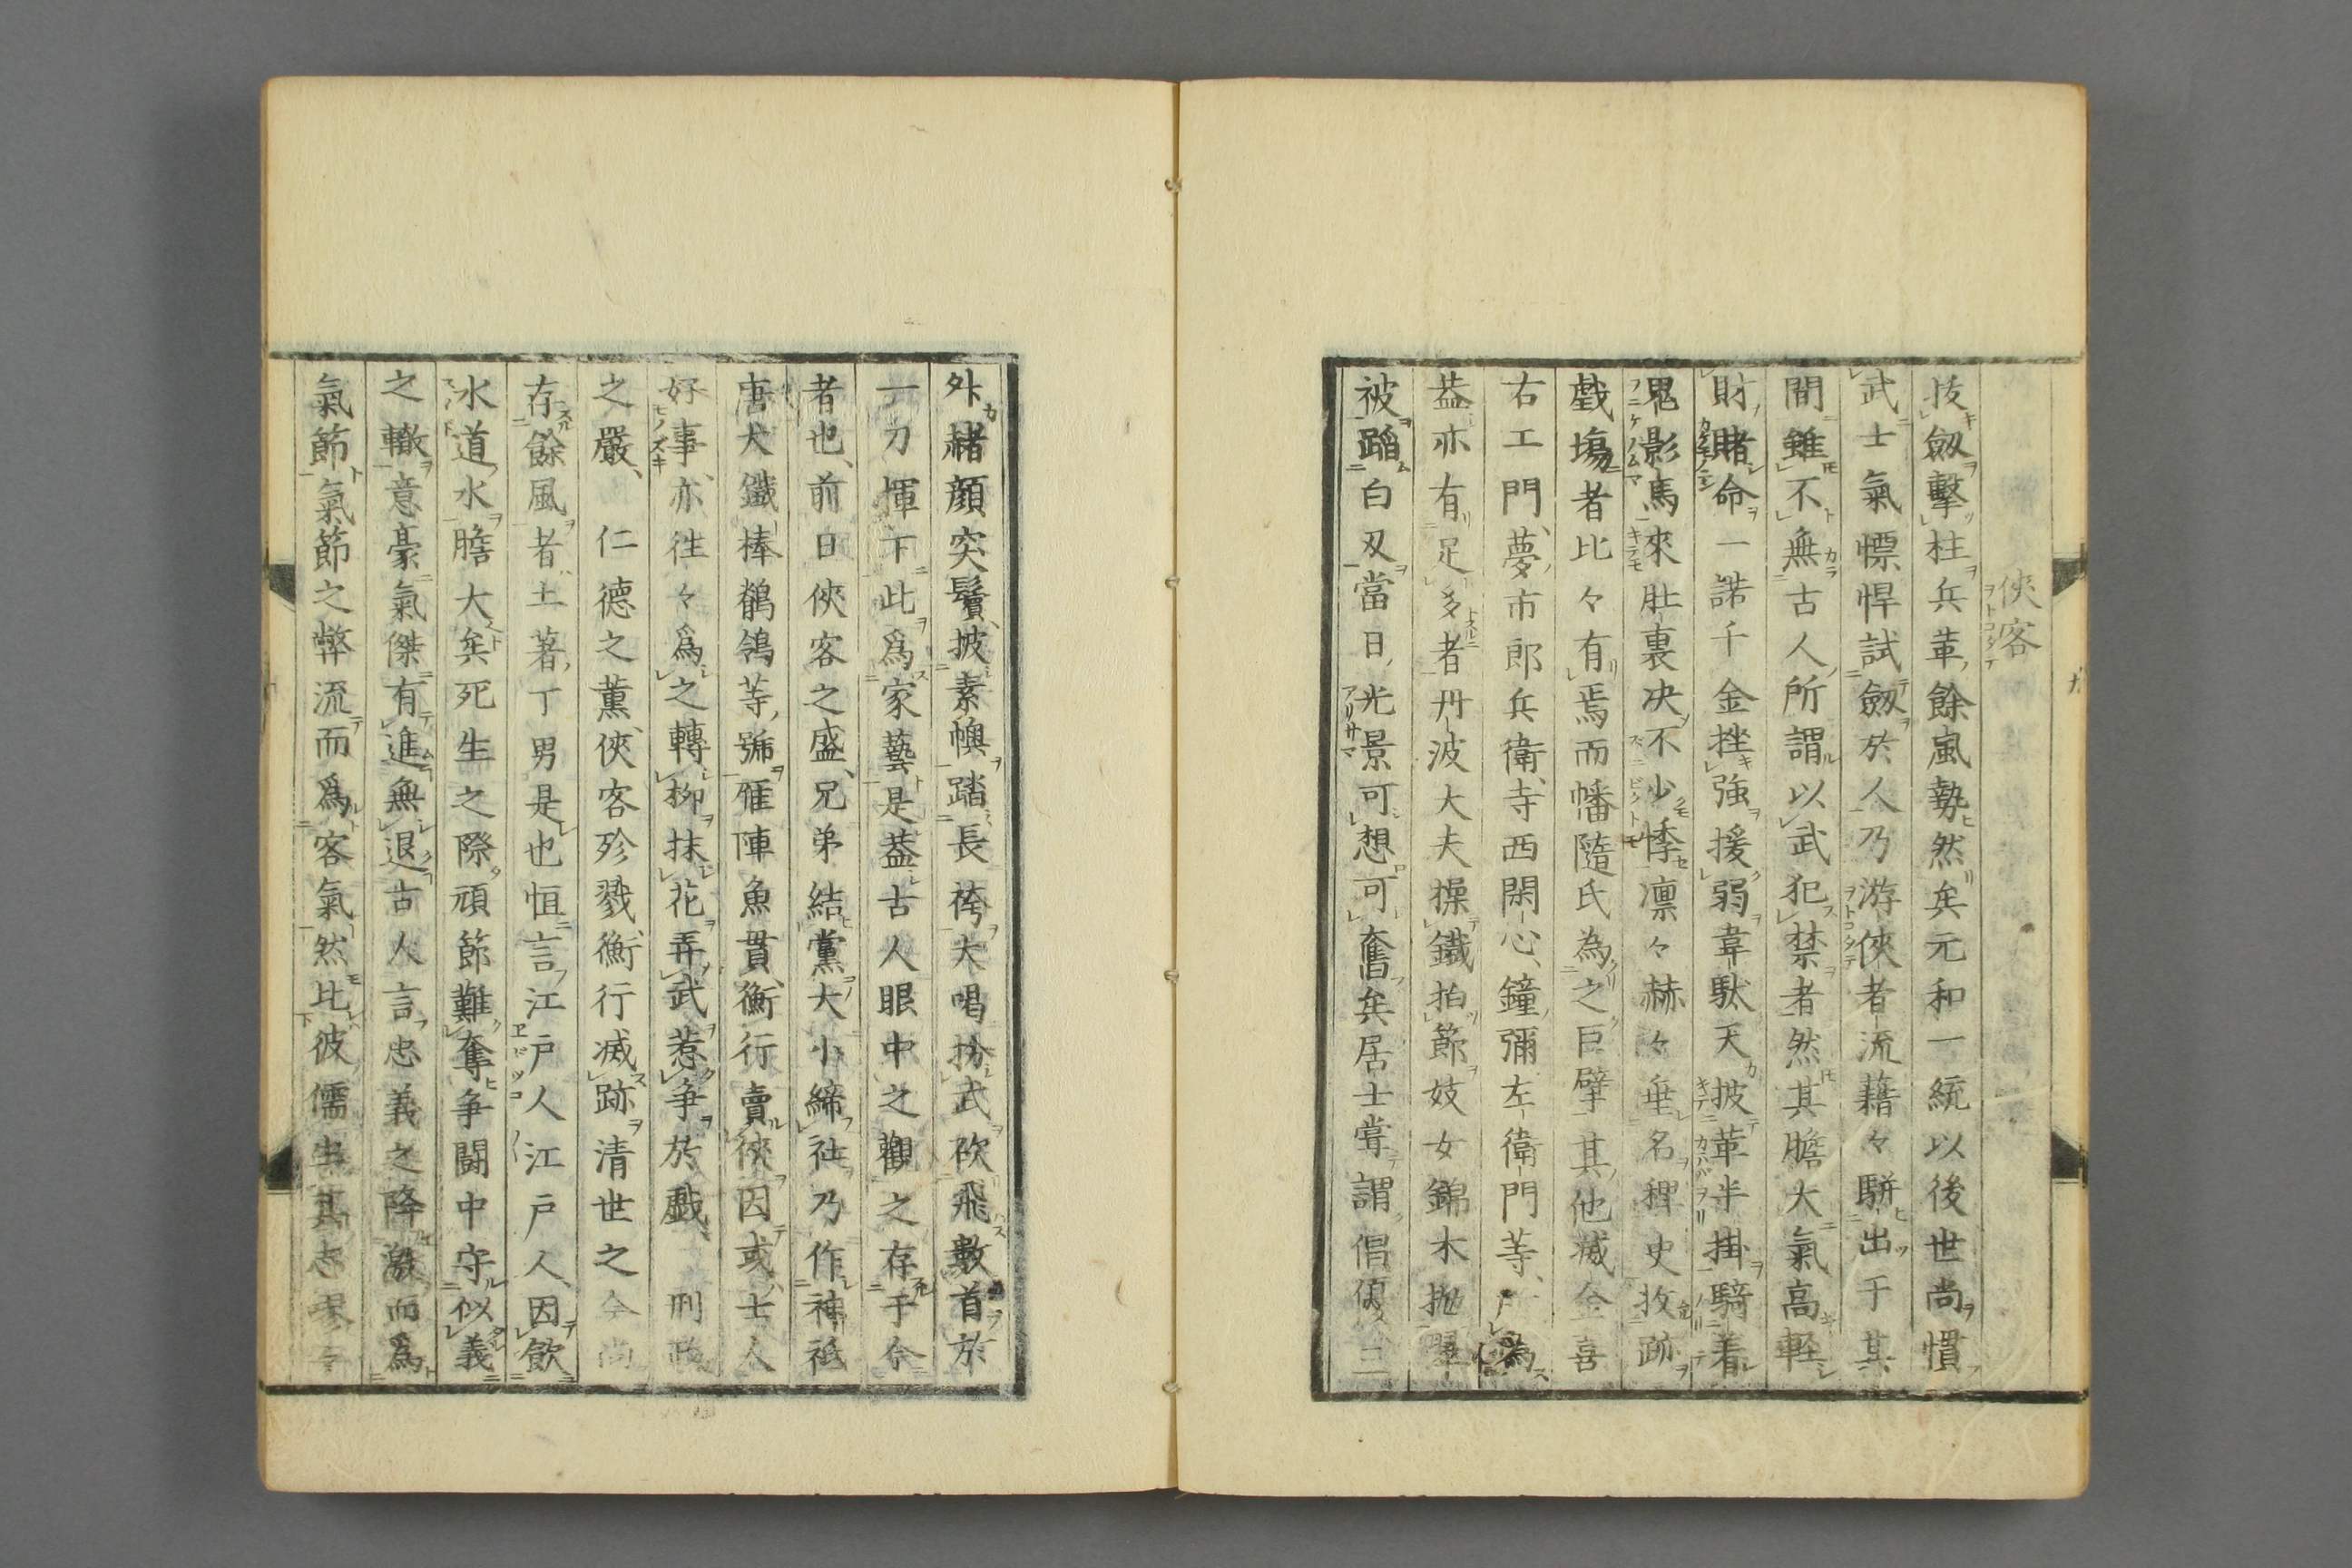 俠客
抜劔擊柱兵革餘嵐勢然矣元和一統以後世尚慣
武士氣慓悍試劔於人乃游俠者流藉々駢出于其
間雖不無古人所謂以武犯禁者然其膽大氣高輕
財賭命一諾千金挫強援弱韋駄天披革半掛騎着
鬼影馬來肚裏决不少悸凛々赫々垂名稗史放跡
戲塲者比々有焉而幡隨氏為之巨擘其他滅金喜
右エ門夢市郎兵衛寺西閑心鐘彌左衛門等為
葢亦有足多者丹波大夫操鐵拍節妓女錦木抛
被蹈白刄當日光景可想可奮矣居士甞謂倡優三
外赭顔突鬢披素幞踏長袴大喝扮武砍飛數首於
一刀揮下此爲家藝是葢古人眼中之觀之存于今
者也前日俠客之盛兄弟結黨大小締社乃作神祇
唐犬鐵棒鶺鴒等號雁陣魚貫衡行賣俠因或士人
好事亦徃々爲之轉柳抹花弄武惹爭於戱刑政
之嚴仁德之薫俠客殄戮衡行滅跡清世之今尚
存餘風者土著丁男是也恒言江戸人江戸人因飲
水道水膽大矣死生之際頑節難奪爭闘中守似義
之轍意豪氣傑有進無退古人言忠義之降激而爲
氣節氣節之弊流而爲客氣然比彼儒生其志